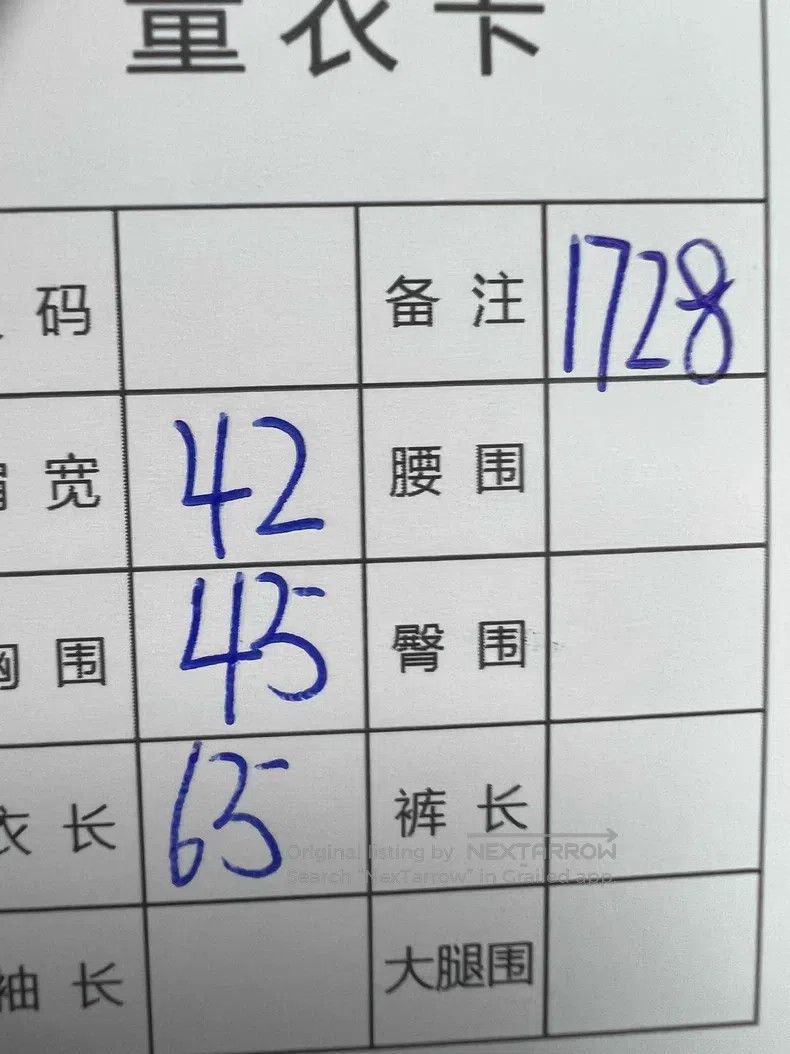 量衣卡
码 备注 1728
肩宽 42 腰围
胸围 45 臀围
衣长 65 裤长
Original listing by NEXTARROW
Search "NexTarrow" in Grailed app
袖长 大腿围